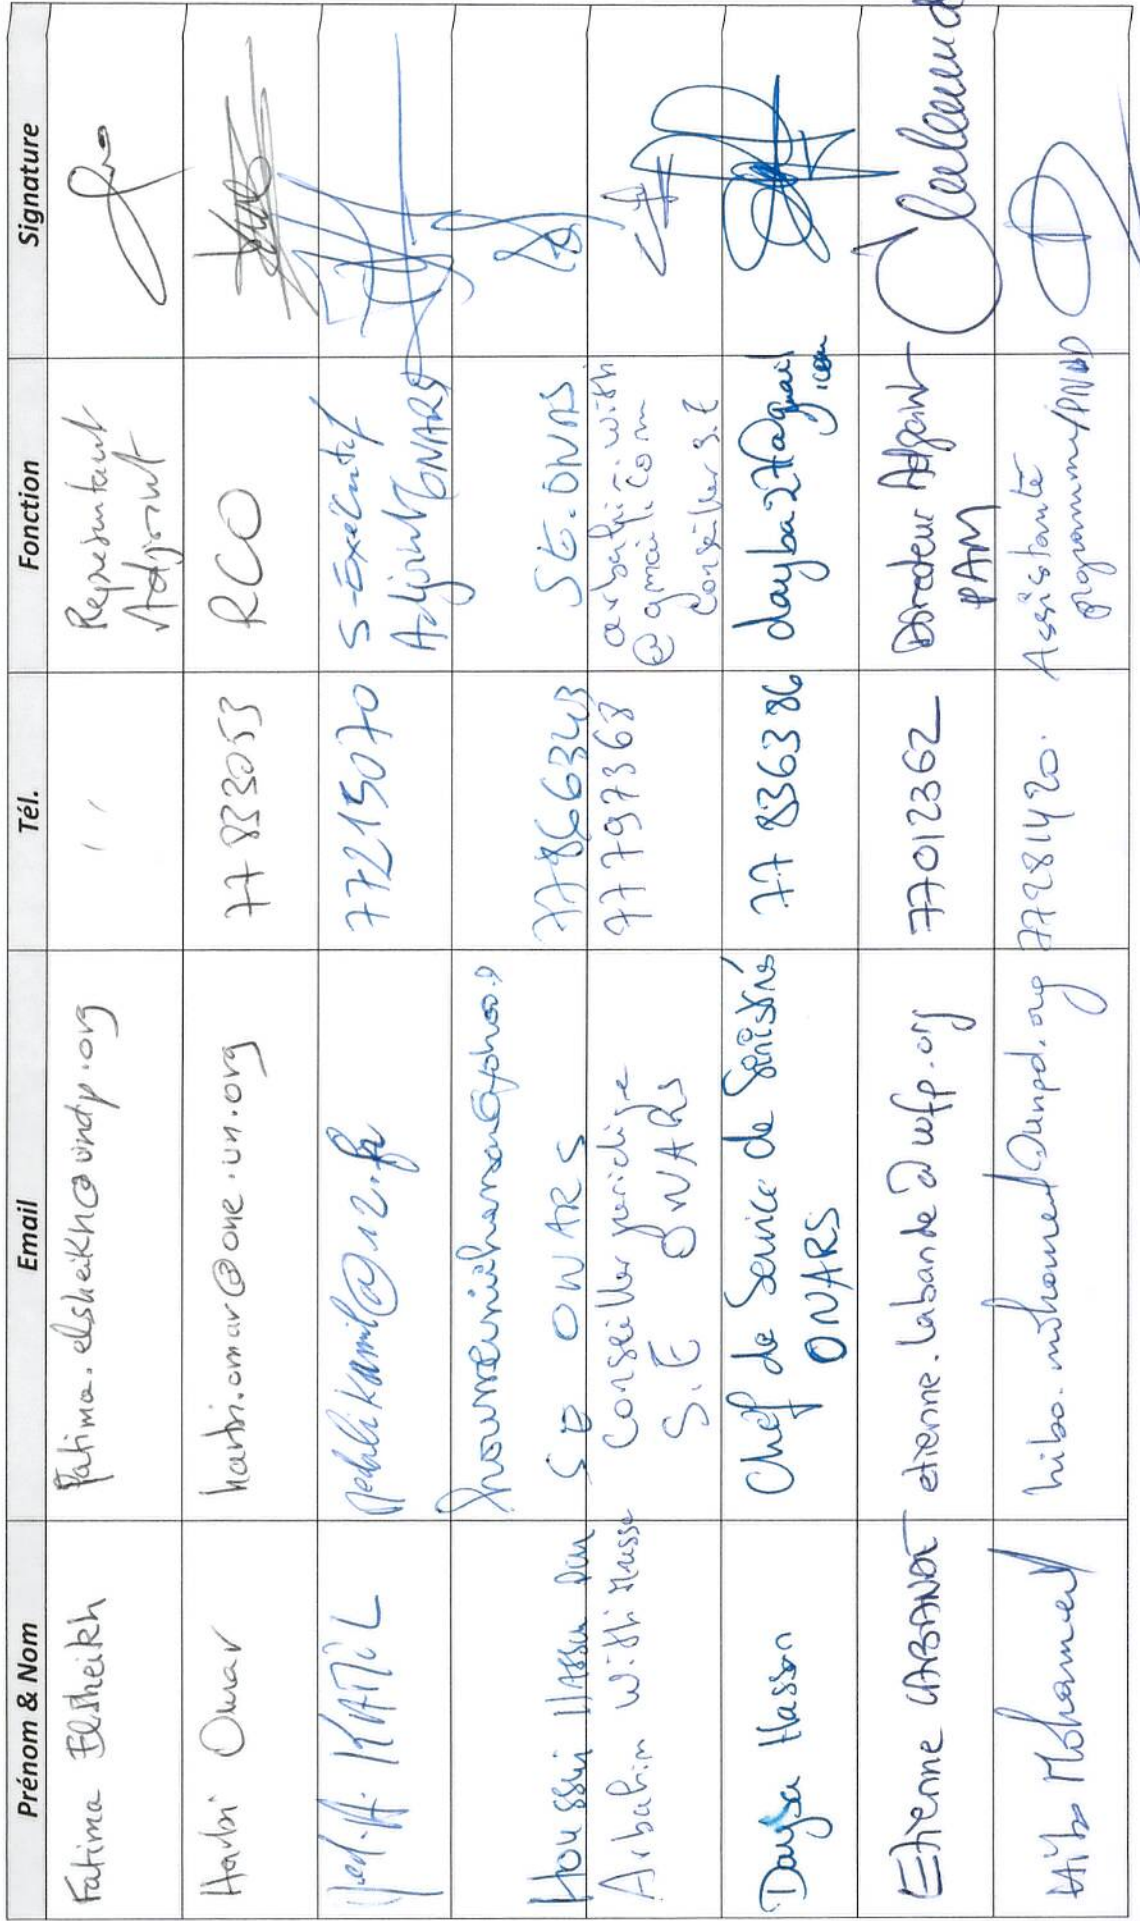 Prénom & Nom Email Tél. Fonction Signature
Fatima Elsheikh Fatima.elsheikh@undp.org " Representant
Adjoint
Harbi Omar harbi.omar@one.un.org 77833053 RCO
KAMIL 77215070 S-Exécutif
Adjoint ONARS
Houssein Hassan
SE ONARS 77866343 SE.ONARS
Conseiller juridique
S.E ONARS 77797368
@gmail.com
Conseiller S.E
Daysa Hasson Chef de Service de Sinistrés
ONARS 77 836386 dayba27@gmail
.com
Etienne LABANDE etienne.labande@wfp.org 77012362 Directeur Adjoint
PAM
Hibo Mohamed hibo.mohamed@unpd.org 77281420. Assistante
programme/PNUD